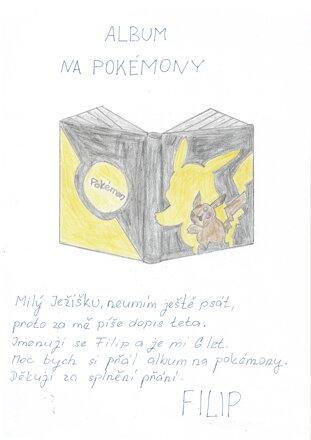 ALBUM
NA POKÉMONY
Pokémon
Milý Ježíšku, neumím ještě psát,
proto za mě píše dopis teta.
Jmenuji se Filip a je mi 6 let.
Moc bych si přál album na pokémony.
Děkuji za splnění přání.
FILIP